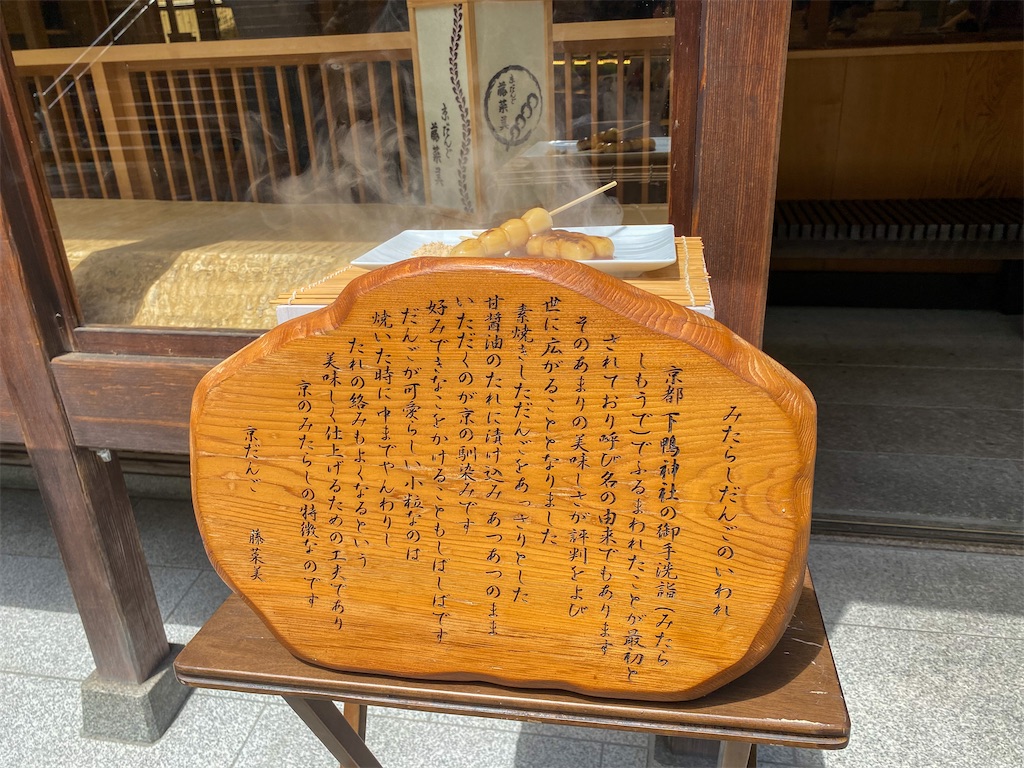 みたらしだんごのいわれ
京都 下鴨神社の御手洗詣(みたら
しもうで)でふるまわれたことが最初と
されており呼び名の由来でもあります
そのあまりの美味しさが評判をよび
世に広がることとなりました
素焼きしただんごをあっさりとした
甘醤油のたれに漬け込み あつあつのまま
いただくのが京の馴染みです
好みできなこをかけることもしばしばです
だんごが可愛らしい小粒なのは
焼いた時に中までやんわりし
たれの絡みもよくなるという
美味しく仕上げるための工夫であり
京のみたらしの特徴なのです
京だんご 藤菜美
京だんご
藤菜美
京・だんご 藤菜美